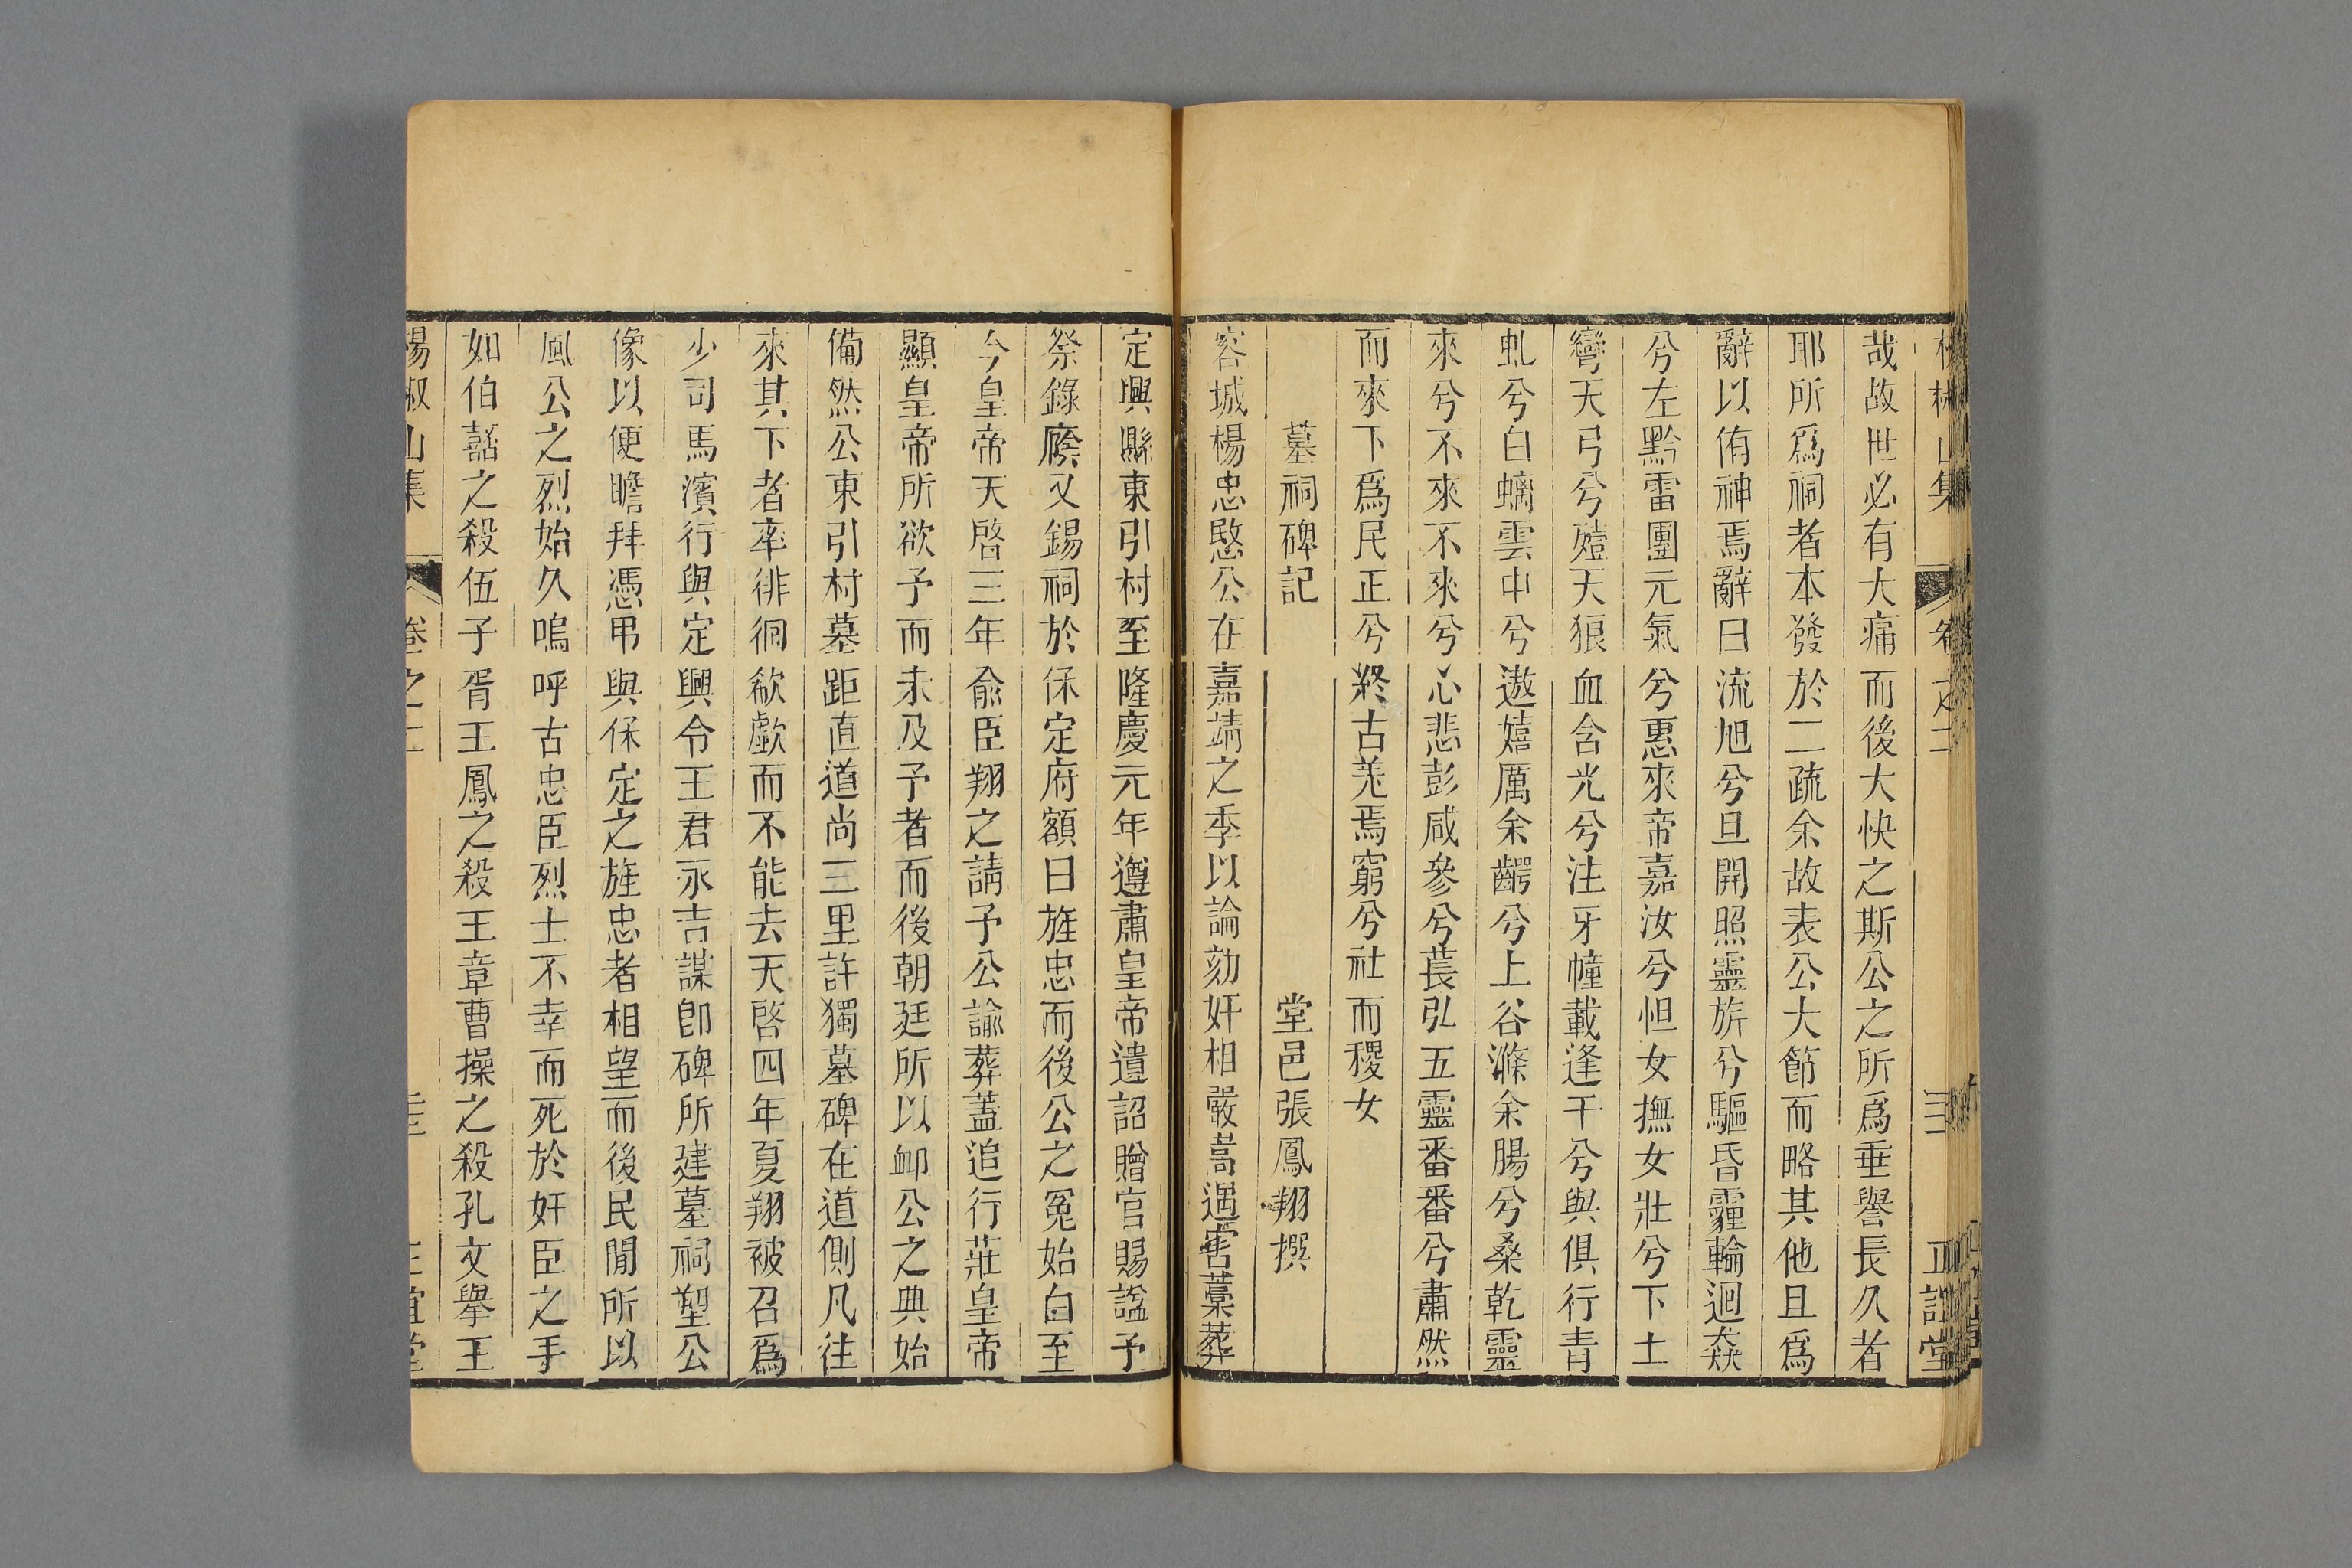 哉故世必有大痛而後大快之斯公之所爲垂譽長久者
耶所爲祠者本發於二疏余故表公大節而略其他且爲
辭以侑神焉辭曰流旭兮旦開照靈旂兮驅昏霾輪迴猋
兮左黔雷團元氣兮惠來帝嘉汝兮怛女撫女壯兮下土
彎天弓兮殪天狼血含光兮注牙幢載逢干兮與俱行青
虬兮白螭雲中兮遨嬉厲余齶兮上谷滌余腸兮桑乾靈
來兮不來不來兮心悲彭咸參兮萇弘五靈番番兮肅然
而來下爲民正兮終古羌焉窮兮社而稷女
墓祠碑記
堂邑張鳳翔撰
容城楊忠愍公在嘉靖之季以論劾奸相嚴嵩遇害藁葬
定興縣東引村至隆慶元年遵肅皇帝遺詔贈官賜諡予
祭錄廕又錫祠於保定府額曰旌忠而後公之冤始白至
今皇帝天啓三年俞臣翔之請予公諭葬蓋追行莊皇帝
顯皇帝所欲予而未及予者而後朝廷所以卹公之典始
備然公東引村墓距直道尚三里許獨墓碑在道側凡往
來其下者率徘徊欷歔而不能去天啓四年夏翔被召爲
少司馬濱行與定興令王君永吉謀卽碑所建墓祠塑公
像以便瞻拜憑弔與保定之旌忠者相望而後民閒所以
風公之烈始久嗚呼古忠臣烈士不幸而死於奸臣之手
如伯嚭之殺伍子胥王鳳之殺王章曹操之殺孔文舉王
楊椒山集 卷之二